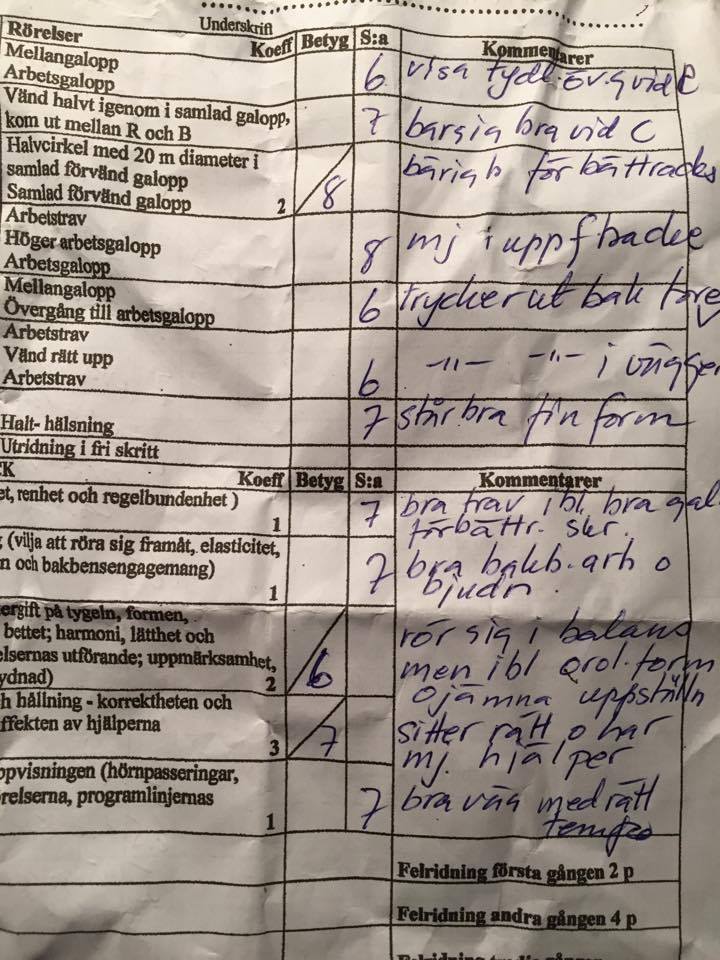 Underskrift
Rörelser Koeff Betyg S:a Kommentarer
Mellangalopp
Arbetsgalopp 6 visa tydl. öv.g vid C
Vänd halvt igenom i samlad galopp,
kom ut mellan R och B 7 bra vid C
Halvcirkel med 20 m diameter i
samlad förvänd galopp
Samlad förvänd galopp 2 8 bärigh förbättrades
Arbetstrav
Höger arbetsgalopp
Arbetsgalopp 8 mj i uppf
Mellangalopp
Övergång till arbetsgalopp 6 trycker ut bak före
Arbetstrav
Vänd rätt upp
Arbetstrav 6 -"- -"- i
Halt- hälsning 7 står bra fin form
Utridning i fri skritt
K Koeff Betyg S:a Kommentarer
et, renhet och regelbundenhet ) 1 7 bra trav ibl. bra gal.
förbättr. skr.
(vilja att röra sig framåt, elasticitet,
n och bakbensengagemang) 1 7 bra bakb. arb o
bjudn.
ergift på tygeln, formen,
bettet; harmoni, lätthet och
elsernas utförande; uppmärksamhet,
ydnad) 2 6 rör sig i balans
men ibl orol. form
ojämna uppställn
h hållning - korrektheten och
ffekten av hjälperna 3 7 sitter rätt o har
mj. hjälper
ppvisningen (hörnpasseringar,
relserna, programlinjernas 1 7 bra väg med rätt
tempo
Felridning första gången 2 p
Felridning andra gången 4 p
Felridning tredje gången